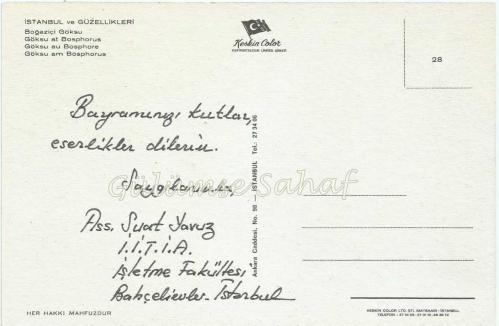 İSTANBUL ve GÜZELLİKLERİ
Boğaziçi Göksu
Göksu at Bosphorus
Göksu au Bosphore
Göksu am Bosphorus
Keskin Color
KARTPOSTALCILIK LIMITED ŞİRKETİ
28
Bayramınızı kutlar,
esenlikler dilerim.
Saygılarımla,
Ass. Suat Yavuz
İ.İ.T.İ.A.
İşletme Fakültesi
Bahçelievler-İstanbul
Gülümse Sahaf
Ankara Caddesi, No. 98 — İSTANBUL Tel.: 27 34 06
HER HAKKI MAHFUZDUR
KESKİN COLOR LTD. ŞTİ. MATBAASI - İSTANBUL